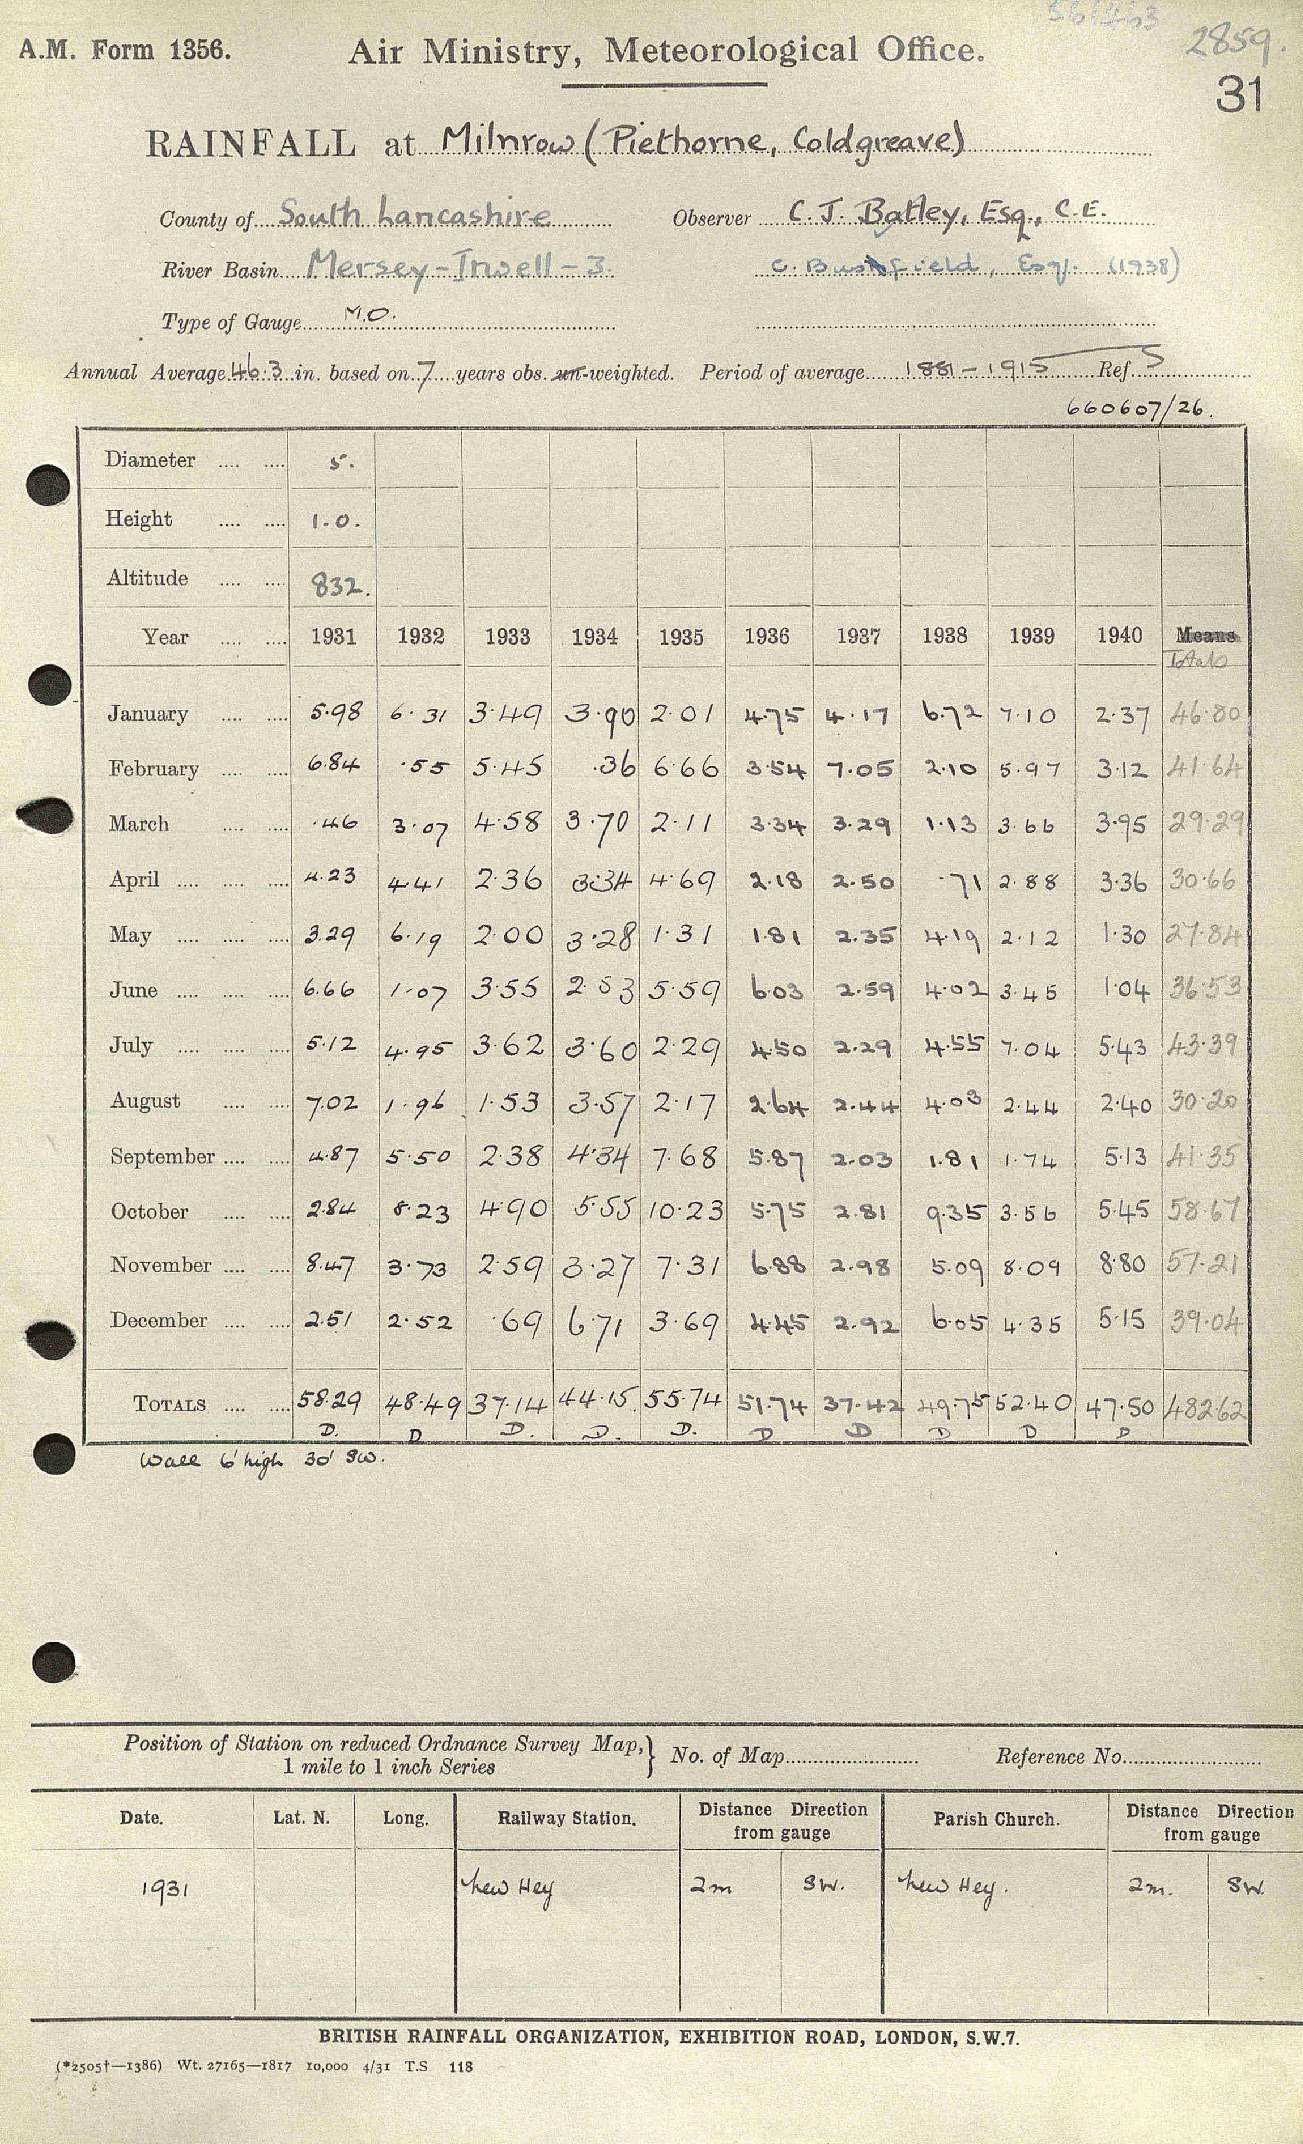 561463
2859.
A.M. Form 1356. Air Ministry, Meteorological Office.
31
RAINFALL at Milnrow (Piethorne, Coldgreave)
County of South Lancashire Observer C. J. Batley, Esq., C.E.
River Basin Mersey-Irwell-3. Esq. (1938)
Type of Gauge M.O.
Annual Average 46.3 in. based on 7 years obs. un-weighted. Period of average 1881-1915 Ref. S
660607/26.
Diameter .... .... 5.
Height .... .... 1.0.
Altitude .... .... 832.
Year .... .... 1931 1932 1933 1934 1935 1936 1937 1938 1939 1940 Means
Totals
January .... .... 5.98 6.31 3.49 3.90 2.01 4.75 4.17 6.72 7.10 2.37 46.80
February .... .... 6.84 .55 5.45 .36 6.66 3.54 7.05 2.10 5.97 3.12 41.64
March .... .... .46 3.07 4.58 3.70 2.11 3.34 3.29 1.13 3.66 3.95 29.29
April .... .... .... 4.23 4.41 2.36 3.34 4.69 2.18 2.50 .71 2.88 3.36 30.66
May .... .... .... 3.29 6.19 2.00 3.28 1.31 1.81 2.35 4.19 2.12 1.30 27.84
June .... .... .... 6.66 1.07 3.55 2.53 5.59 6.03 2.59 4.02 3.45 1.04 36.53
July .... .... .... 5.12 4.95 3.62 3.60 2.29 4.50 2.29 4.55 7.04 5.43 43.39
August .... .... 7.02 1.96 1.53 3.57 2.17 2.64 2.44 4.03 2.44 2.40 30.20
September .... .... 4.87 5.50 2.38 4.34 7.68 5.87 2.03 1.81 1.74 5.13 41.35
October .... .... 2.84 8.23 4.90 5.55 10.23 5.75 2.81 9.35 3.56 5.45 58.67
November .... .... 8.47 3.73 2.59 3.27 7.31 6.88 2.98 5.09 8.09 8.80 57.21
December .... .... 2.51 2.52 .69 6.71 3.69 4.45 2.92 6.05 4.35 5.15 39.04
TOTALS .... .... 58.29 48.49 37.14 44.15 55.74 51.74 37.42 49.75 52.40 47.50 482.62
D. D D. D. D. D D D D D
Wall 6' high 30' SW.
Position of Station on reduced Ordnance Survey Map, 1 mile to 1 inch Series } No. of Map Reference No.
Date. Lat. N. Long. Railway Station. Distance Direction from gauge Parish Church. Distance Direction from gauge
1931 New Hey 2m SW. New Hey. 2m. SW.
BRITISH RAINFALL ORGANIZATION, EXHIBITION ROAD, LONDON, S.W.7.
(*2505†—1386) Wt. 27165—1817 10,000 4/31 T.S 118